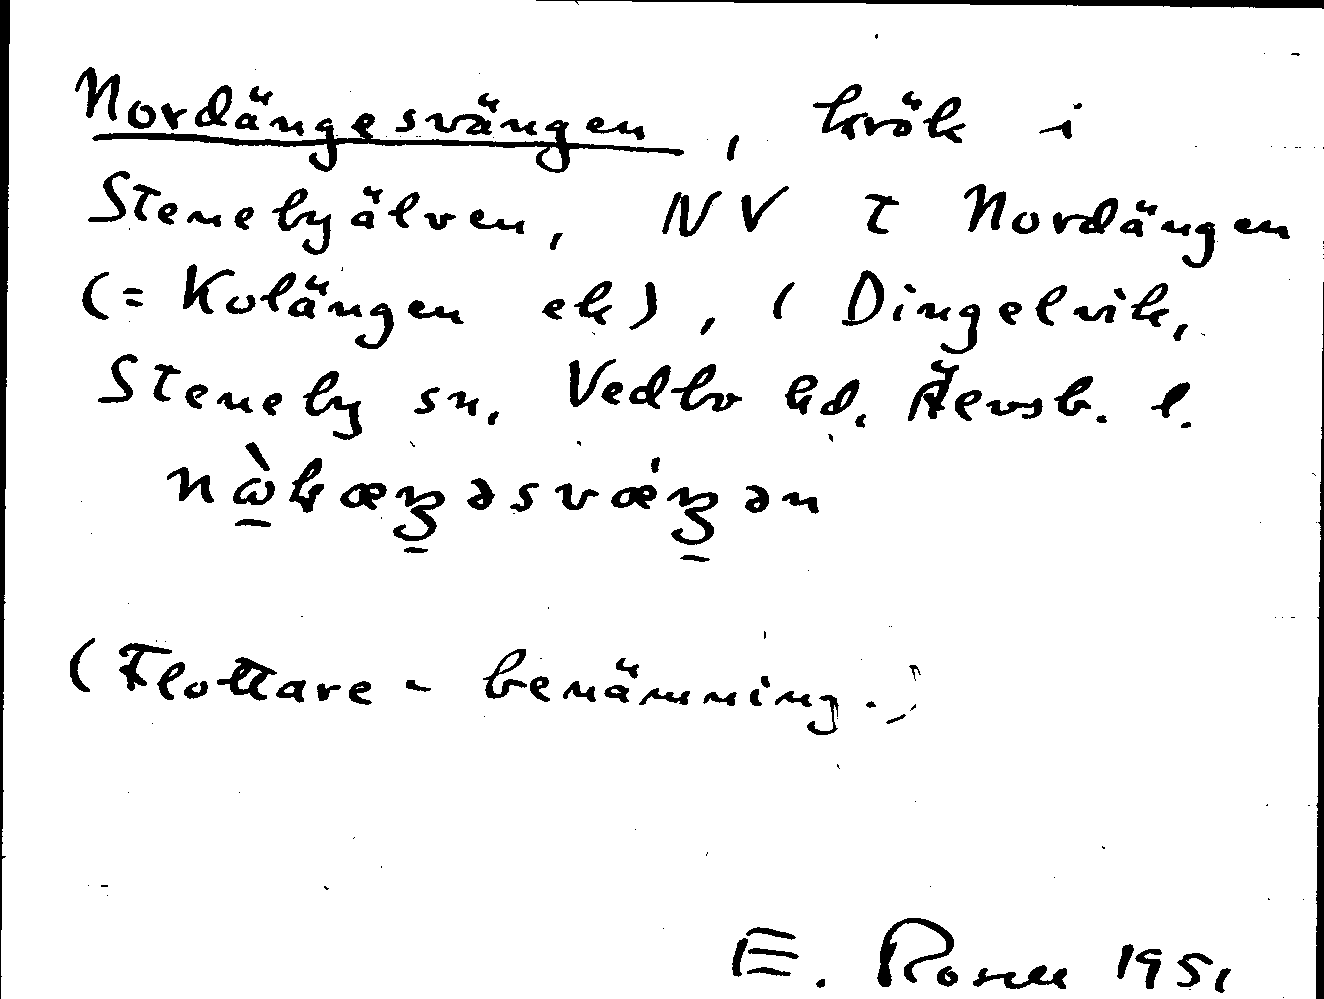 Nordängesvängen, krök i
Stenebyälven, NV t Nordängen
(= Kolängen ek), ( Dingelvik,
Steneby sn, Vedbo hd. Älvsb. l.
(Flottare-benämning.)
E. Rosell 1951